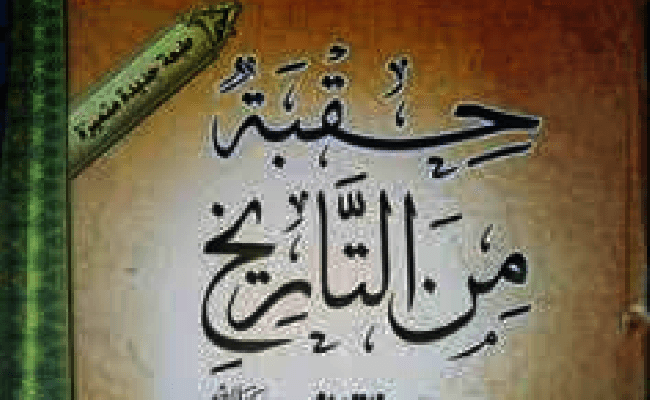 طبعة جديدة منقحة
حِقْبَةٌ
مِنَ التَّارِيخِ